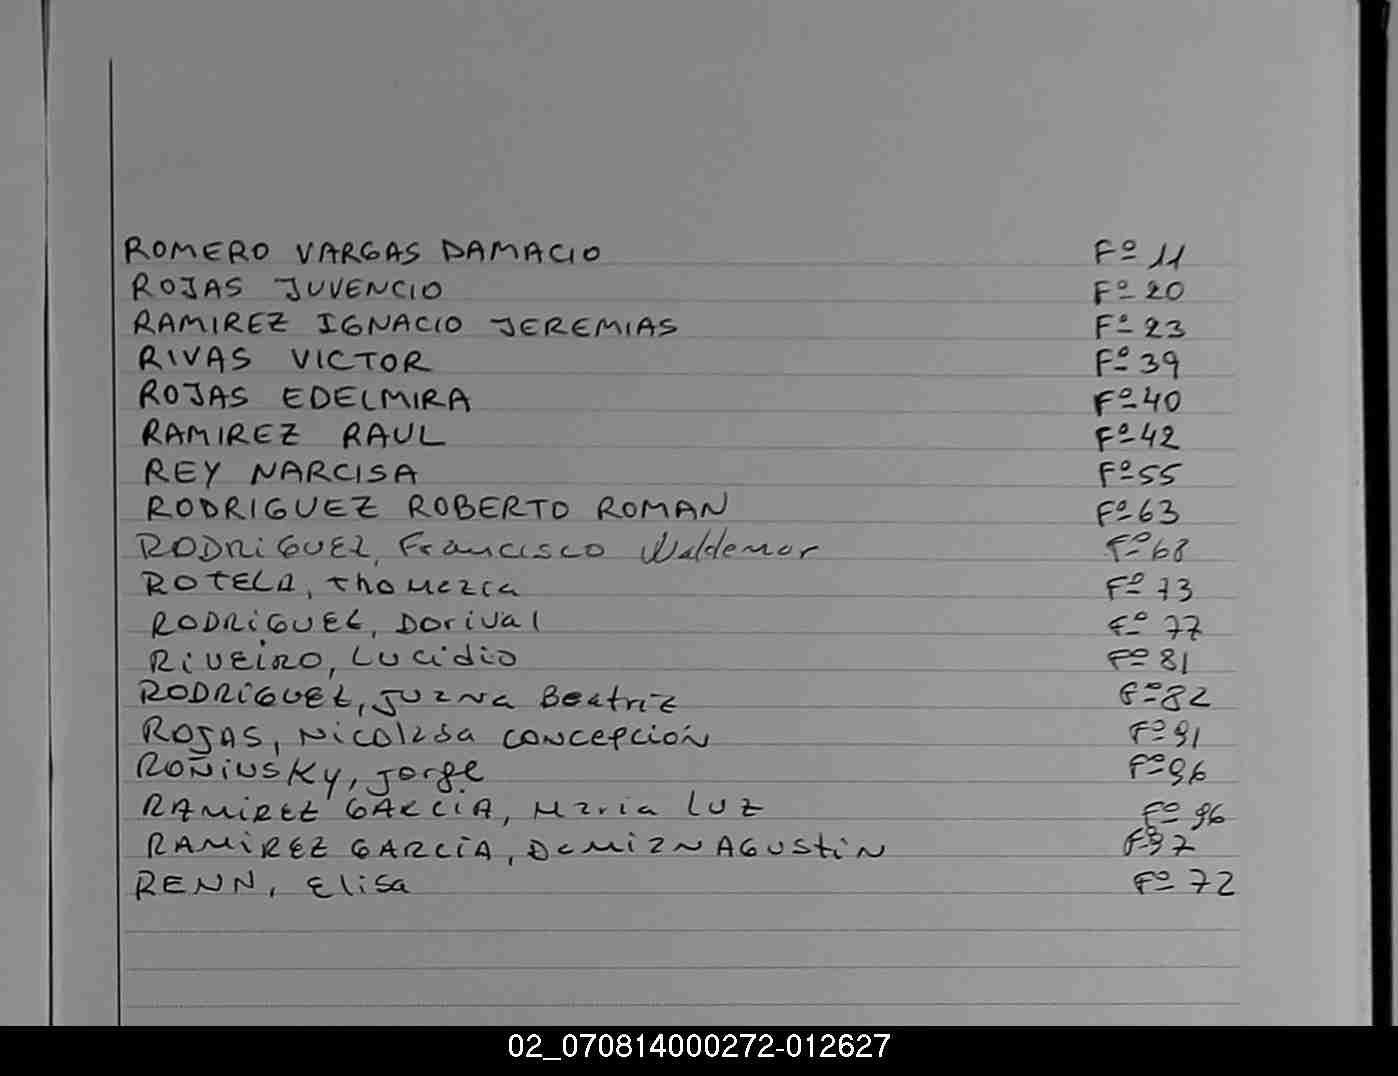 ROMERO VARGAS DAMACIO Fº 11
ROJAS JUVENCIO Fº 20
RAMIREZ IGNACIO JEREMIAS Fº 23
RIVAS VICTOR Fº 39
ROJAS EDELMIRA Fº 40
RAMIREZ RAUL Fº 42
REY NARCISA Fº 55
RODRIGUEZ ROBERTO ROMAN Fº 63
RODRIGUEZ, Francisco Waldemar Fº 68
ROTELA, Thomazia Fº 73
RODRIGUEZ, Dorival Fº 77
RIVEIRO, Lucidio Fº 81
RODRIGUEZ, Juana Beatriz Fº 82
ROJAS, Nicolasa concepción Fº 91
ROÑIUSKY, Jorge Fº 96
RAMIREZ GARCIA, Maria LUZ Fº 96
RAMIREZ GARCIA, Damian AGUSTIN Fº 97
RENN, Elisa Fº 72
02_070814000272-012627